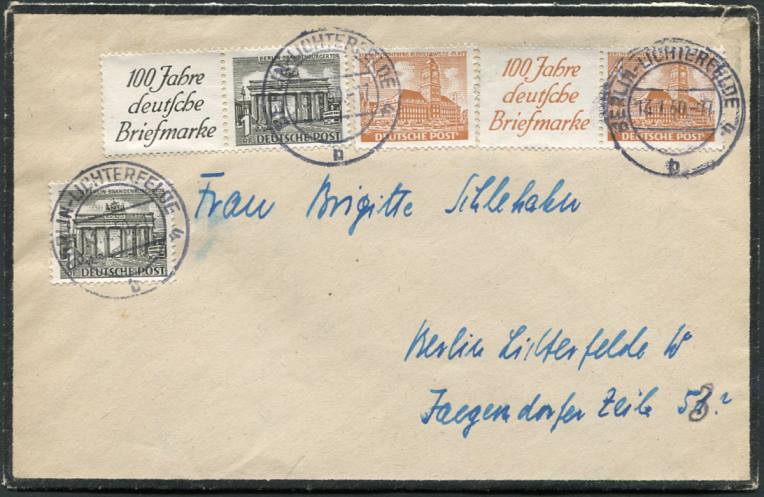 100 Jahre
deutsche
Briefmarke
BERLIN BRANDENBURGER TOR
1
DEUTSCHE POST
BERLIN-LICHTERFELDE 4
b
DEUTSCHE POST
100 Jahre
deutsche
Briefmarke
DEUTSCHE POST
BERLIN-LICHTERFELDE 4
50.-17
b
BERLIN BRANDENBURGER TOR
DEUTSCHE POST
BERLIN-LICHTERFELDE 4
b
Frau Brigitte Schlehahn
Berlin Lichterfelde W
Jaegendorfer Zeile